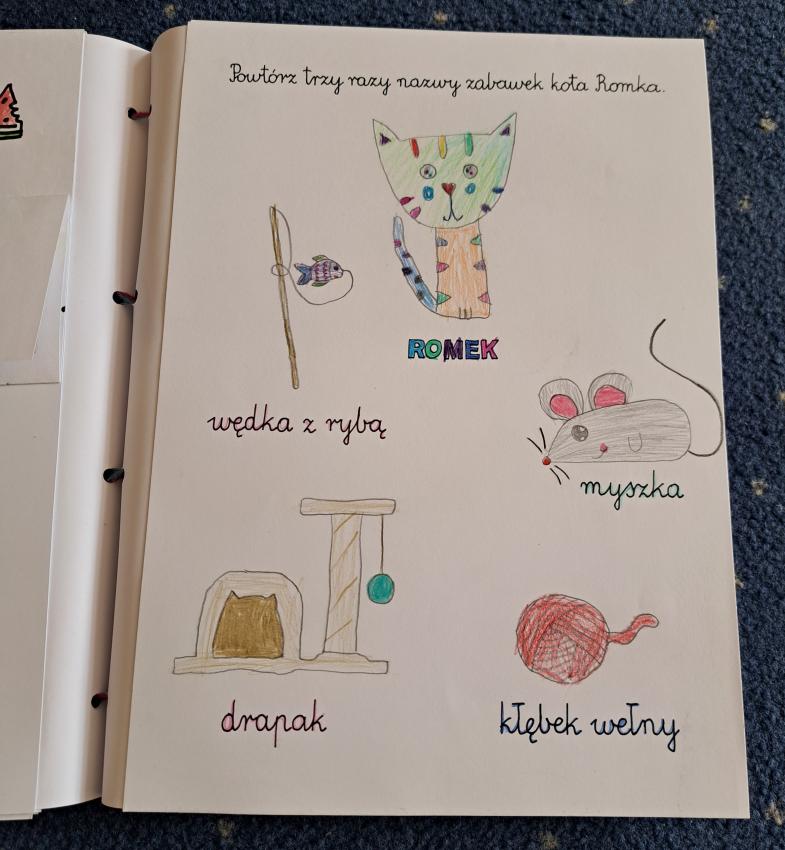 Powtórz trzy razy nazwy zabawek kota Romka.
ROMEK
wędka z rybą
myszka
drapak
kłębek wełny